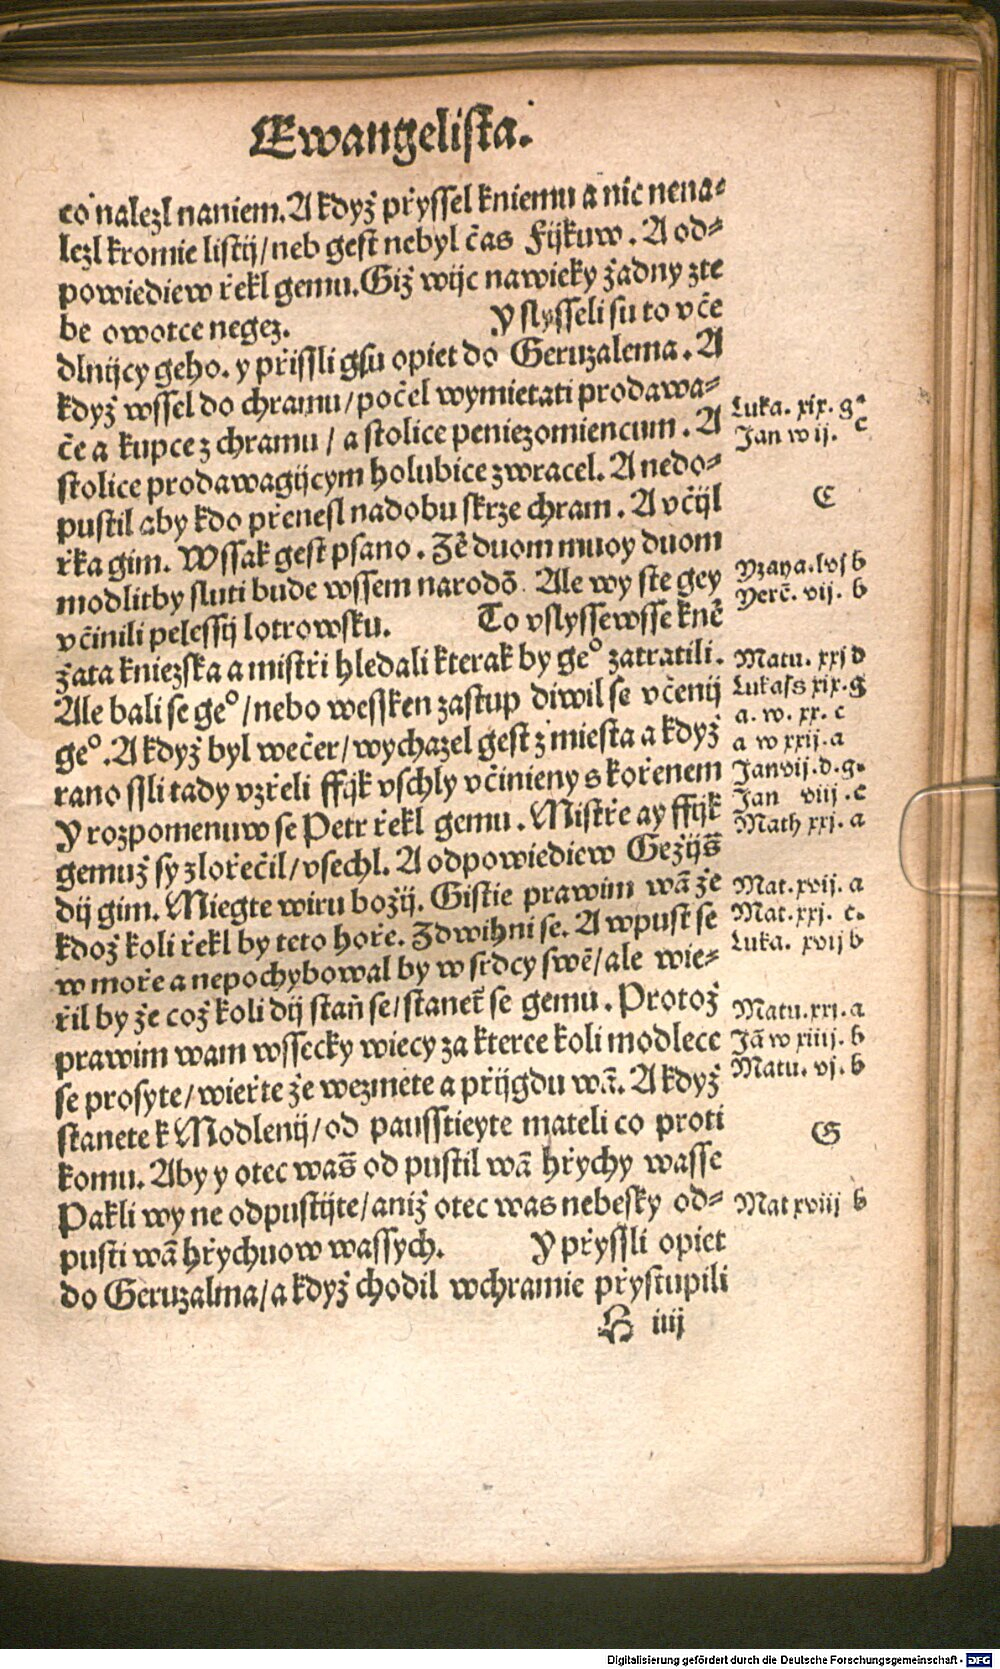 Ewangelista.
co nalezl naniem. A kdyż przyssel kniemu a nic nena⸗
lezl kromie listij/neb gest nebyl čas Fijkuw. A od⸗
powiediew řekl gemu. Giż wijc nawieky żadny zte
be owotce negez. Y slysseli su to vče
dlnijcy geho. y přissli gsu opiet do Geruzalema. A
kdyż wssel do chramu/počel wymietati prodawa⸗
če a kupce z chramu/a stolice peniezomiencum. A
stolice prodawagijcym holubice zwracel. A nedo⸗
pustil aby kdo přenesl nadobu skrze chram. A včijl
řka gim. Wssak gest psano. Żē duom muoy duom
modlitby sluti bude wssem narodō. Ale wy ste gey
včinili pelessij lotrowsku. To vslyssewsse knē
żata kniezska a mistři hledali kterak by geº zatratili.
Ale bali se geº/nebo wessken zastup diwil se včenij
geº. A kdyż byl wečer/wychazel gest z miesta a kdyż
rano ssli tady vzřeli ffijk vschly včinieny s kořenem
Y rozpomenuw se Petr řekl gemu. Mistře ay ffijk
gemuż sy zlořečil/vsechl. A odpowiediew Geżijs̄
dij gim. Miegte wiru bożij. Gistie prawim wā że
kdoż koli řekl by teto hoře. Zdwihni se. A wpust se
w moře a nepochybowal by w srdcy swē/ale wie⸗
řil by że coż koli dij stan̄ se/staneť se gemu. Protoż
prawim wam wssecky wiecy za kterce koli modlece
se prosyte/wieřte że wezmete a přijgdu wā. A kdyż
stanete k Modlenij/od pausstieyte mateli co proti
komu. Aby y otec was̄ od pustil wā hřychy wasse
Pakli wy ne odpustijte/aniż otec was nebesky od⸗
pusti wā hřychuow wassych. Y přyssli opiet
do Geruzalma/a kdyż chodil wchramie přystupili
H iiij
Luka. xix. g.
Jan w ij. c
E
Yzaya. lvj b
Yerē. vij. b
Matu. xxj d
Lukass xix. g
a. w. xx. c
a w xxij. a
Jan vij. d. g.
Jan viij. c
Math xxj. a
Mat. xvij. a
Mat. xxj. c.
Luka. xvij b
Matu. xxj. a
Jā w xiiij. b
Matu. vj. b
G
Mat xviij b
Digitalisierung gefördert durch die Deutsche Forschungsgemeinschaft - DFG